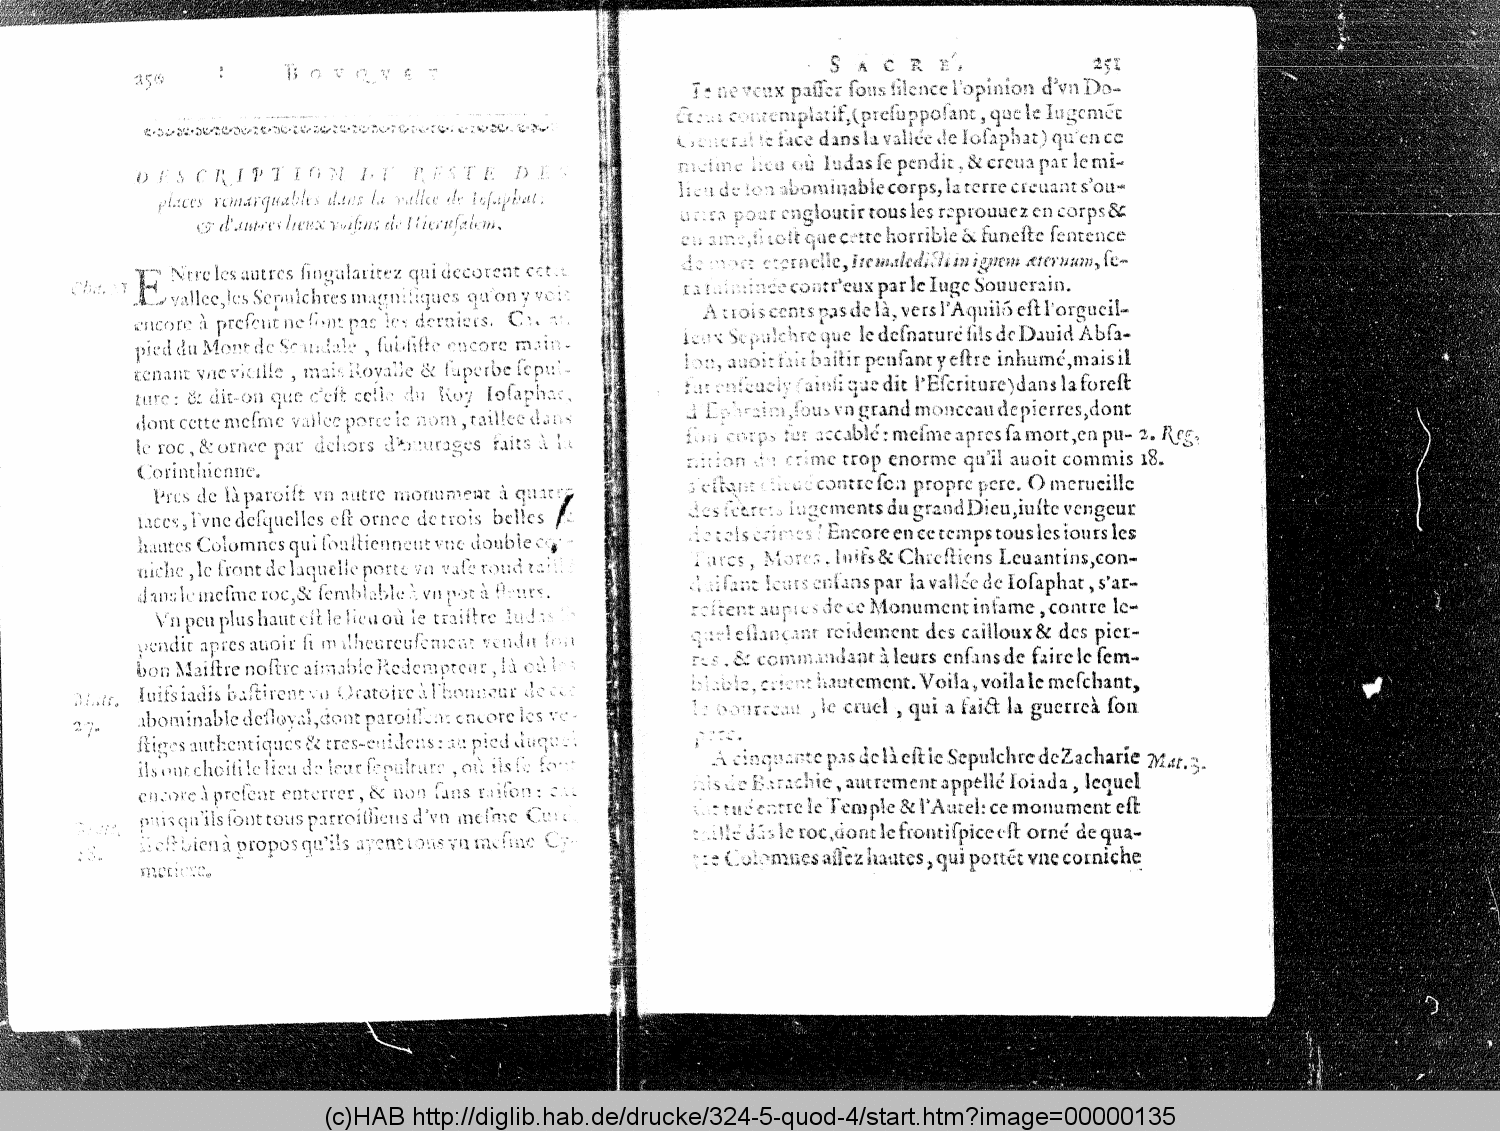 250 BOVQVET
DESCRIPTION DV RESTE DES
places remarquables dans la vallee de Iosaphat,
& d'autres lieux voisins de Hierusalem.
ENtre les autres singularitez qui decorent cette
vallee, les Sepulchres magnifiques qu'on y voit
encore à present ne sont pas les derniers. Au
pied du Mont de Scandale, subsiste encore main-
tenant vne vieille, mais Royalle & superbe sepul-
ture: & dit-on que c'est celle du Roy Iosaphat,
dont cette mesme vallee porte le nom, taillee dans
le roc, & ornee par dehors d'ouurages faits à la
Corinthienne.
Pres de là paroist vn autre monument à quatre
faces, l'vne desquelles est ornee de trois belles &
hautes Colomnes qui soustiennent vne double cor-
niche, le front de laquelle porte vn vase rond taillé
dans le mesme roc, & semblable à vn pot à fleurs.
Vn peu plus haut est le lieu où le traistre Iudas se
pendit apres auoir si malheureusement vendu son
bon Maistre nostre aimable Redempteur, là où les
Iuifs iadis bastirent vn Oratoire à l'honneur de cet
Matt.
abominable desloyal, dont paroissent encore les ve-
27.
stiges authentiques & tres-euidens: au pied duquel
ils ont choisi le lieu de leur sepulture, où ils se font
encore à present enterrer, & non sans raison: car
puisqu'ils sont tous parroissiens d'vn mesme Curé
il est bien à propos qu'ils ayent tous vn mesme Cy-
metiere.
SACRÉ. 251
Ie ne veux passer sous silence l'opinion d'vn Do-
cteur contemplatif, (presupposant, que le Iugemẽt
General se face dans la vallée de Iosaphat) qu'en ce
mesme lieu où Iudas se pendit, & creua par le mi-
lieu de son abominable corps, la terre creuant s'ou-
urira pour engloutir tous les reprouuez en corps &
en ame, si tost que cette horrible & funeste sentence
de mort eternelle, Ite maledicti in ignem æternum, se-
ra fulminée contr'eux par le Iuge Souuerain.
A trois cents pas de là, vers l'Aquilõ est l'orgueil-
leux Sepulchre que le desnaturé fils de Dauid Absa-
lon, auoit fait bastir pensant y estre inhumé, mais il
fut enseuely (ainsi que dit l'Escriture) dans la forest
d'Ephraim, sous vn grand monceau de pierres, dont
son corps fut accablé: mesme apres sa mort, en pu- 2. Reg.
nition du crime trop enorme qu'il auoit commis 18.
s'estant esleué contre son propre pere. O merueille
des secrets Iugements du grand Dieu, iuste vengeur
de tels crimes! Encore en ce temps tous les iours les
Turcs, Mores, Iuifs & Chrestiens Leuantins, con-
duisant leurs enfans par la vallée de Iosaphat, s'ar-
restent aupres de ce Monument infame, contre le-
quel eslançant roidement des cailloux & des pier-
res, & commandant à leurs enfans de faire le sem-
blable, crient hautement. Voila, voila le meschant,
le bourreau, le cruel, qui a faict la guerre à son
pere.
A cinquante pas de là est le Sepulchre de Zacharie Mat. 3.
fils de Barachie, autrement appellé Ioiada, lequel
fut tué entre le Temple & l'Autel: ce monument est
taillé dãs le roc, dont le frontispice est orné de qua-
tre Colomnes assez hautes, qui portẽt vne corniche
(c)HAB http://diglib.hab.de/drucke/324-5-quod-4/start.htm?image=00000135